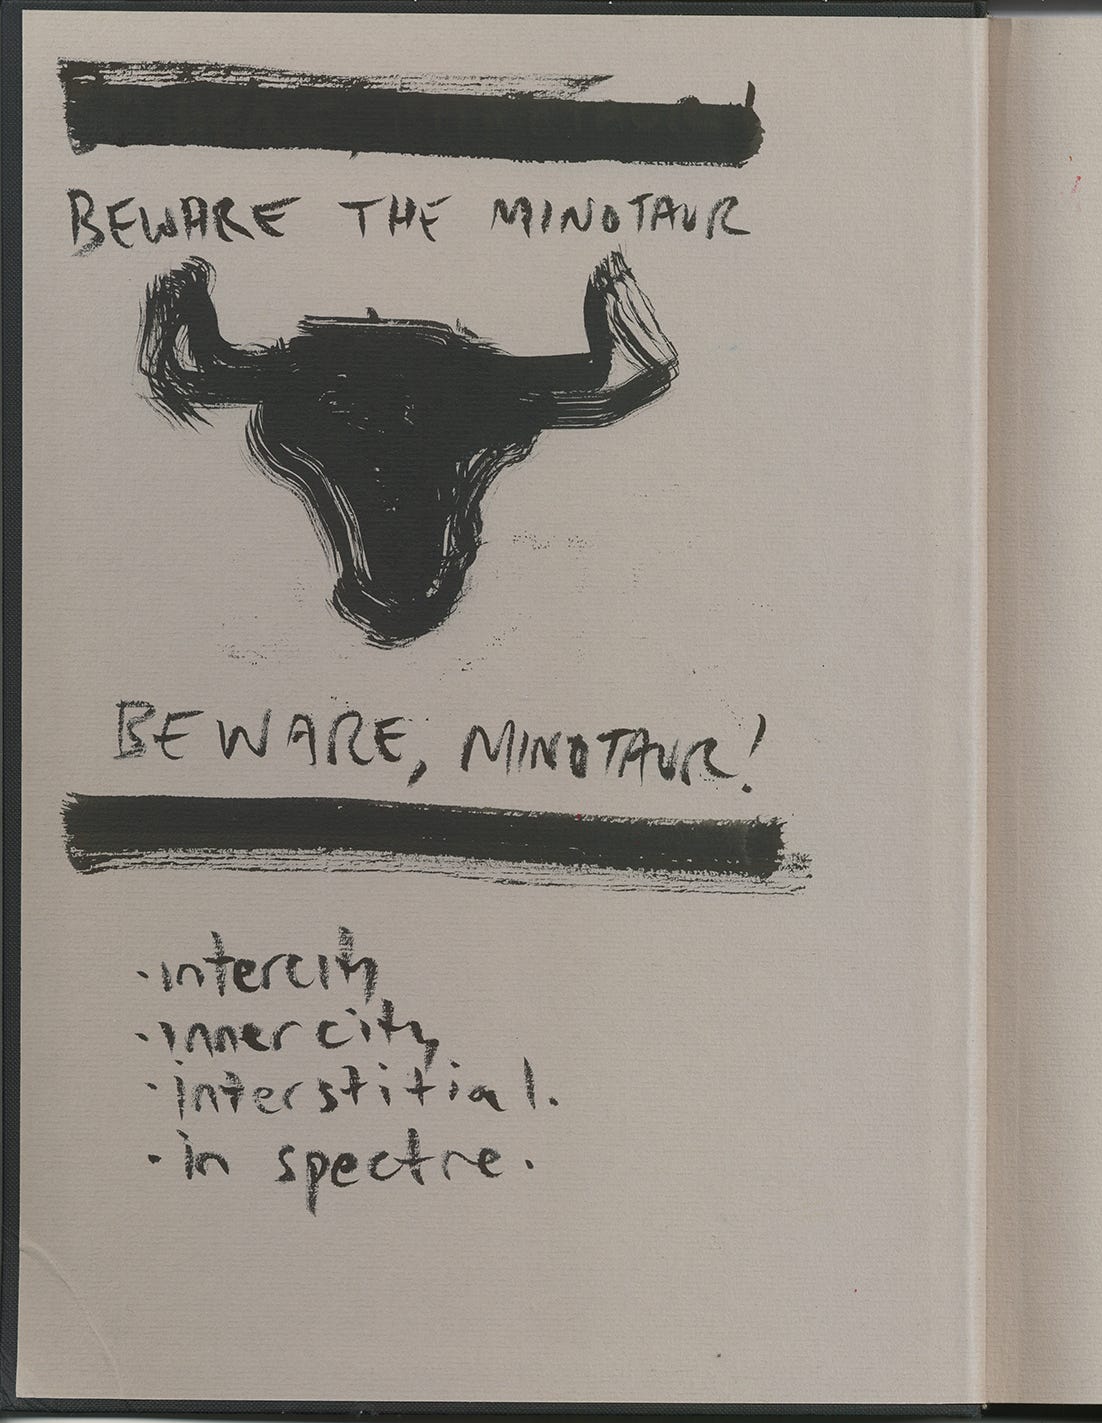 BEWARE THE MINOTAUR
BEWARE, MINOTAUR!
· intercity
· inner city
· interstitial.
· in spectre.